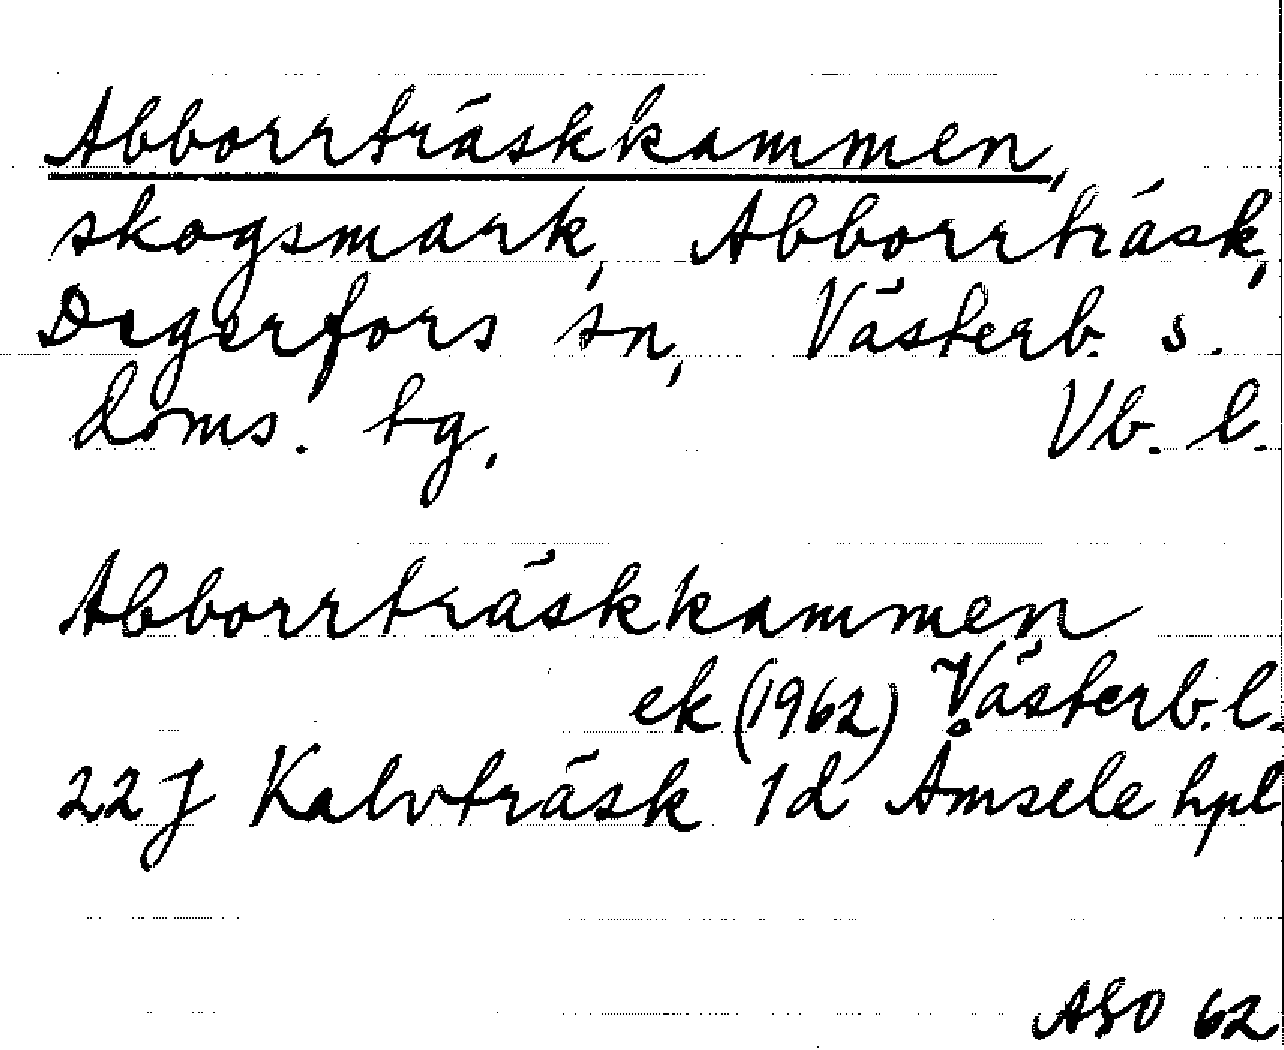 Abborrträskkammen,
skogsmark, Abborrträsk,
Degerfors sn, Västerb. s.
doms. tg. Vb. l.
Abborrträskkammen
ek (1962) Västerb. l.
22 J Kalvträsk 1d Åmsele hpl
ASO 62